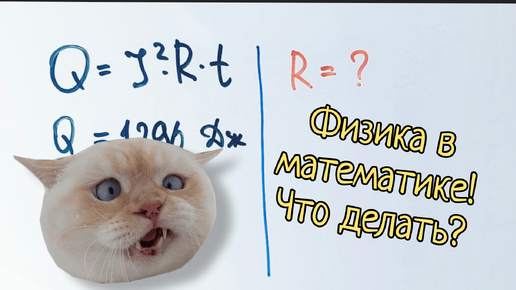 Q = J².R.t
R = ?
Q = 1296 Дж
Физика в
математике!
Что делать?